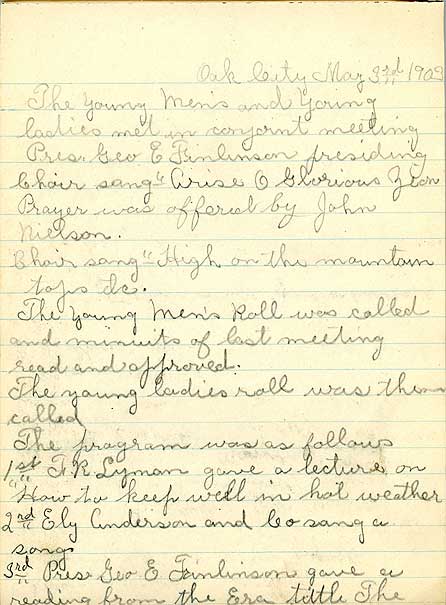 Oak City May 3rd 1903
The Young Men's and Young
ladies met in conjoint meeting
Pres. Geo E Finlinson presiding
Choir sang "Arise O Glorious Zion
Prayer was offered by John
Nielson.
Choir sang "High on the mountain
tops &c.
The Young Men's Roll was called
and minuits of last meeting
read and approved.
The young ladies roll was then
called
The program was as follows
1st F. R Lyman gave a lecture on
How to keep well in hot weather
2nd Ely Anderson and Co sang a
song
3rd Pres. Geo E Finlinson gave a
reading from the Era tittle The